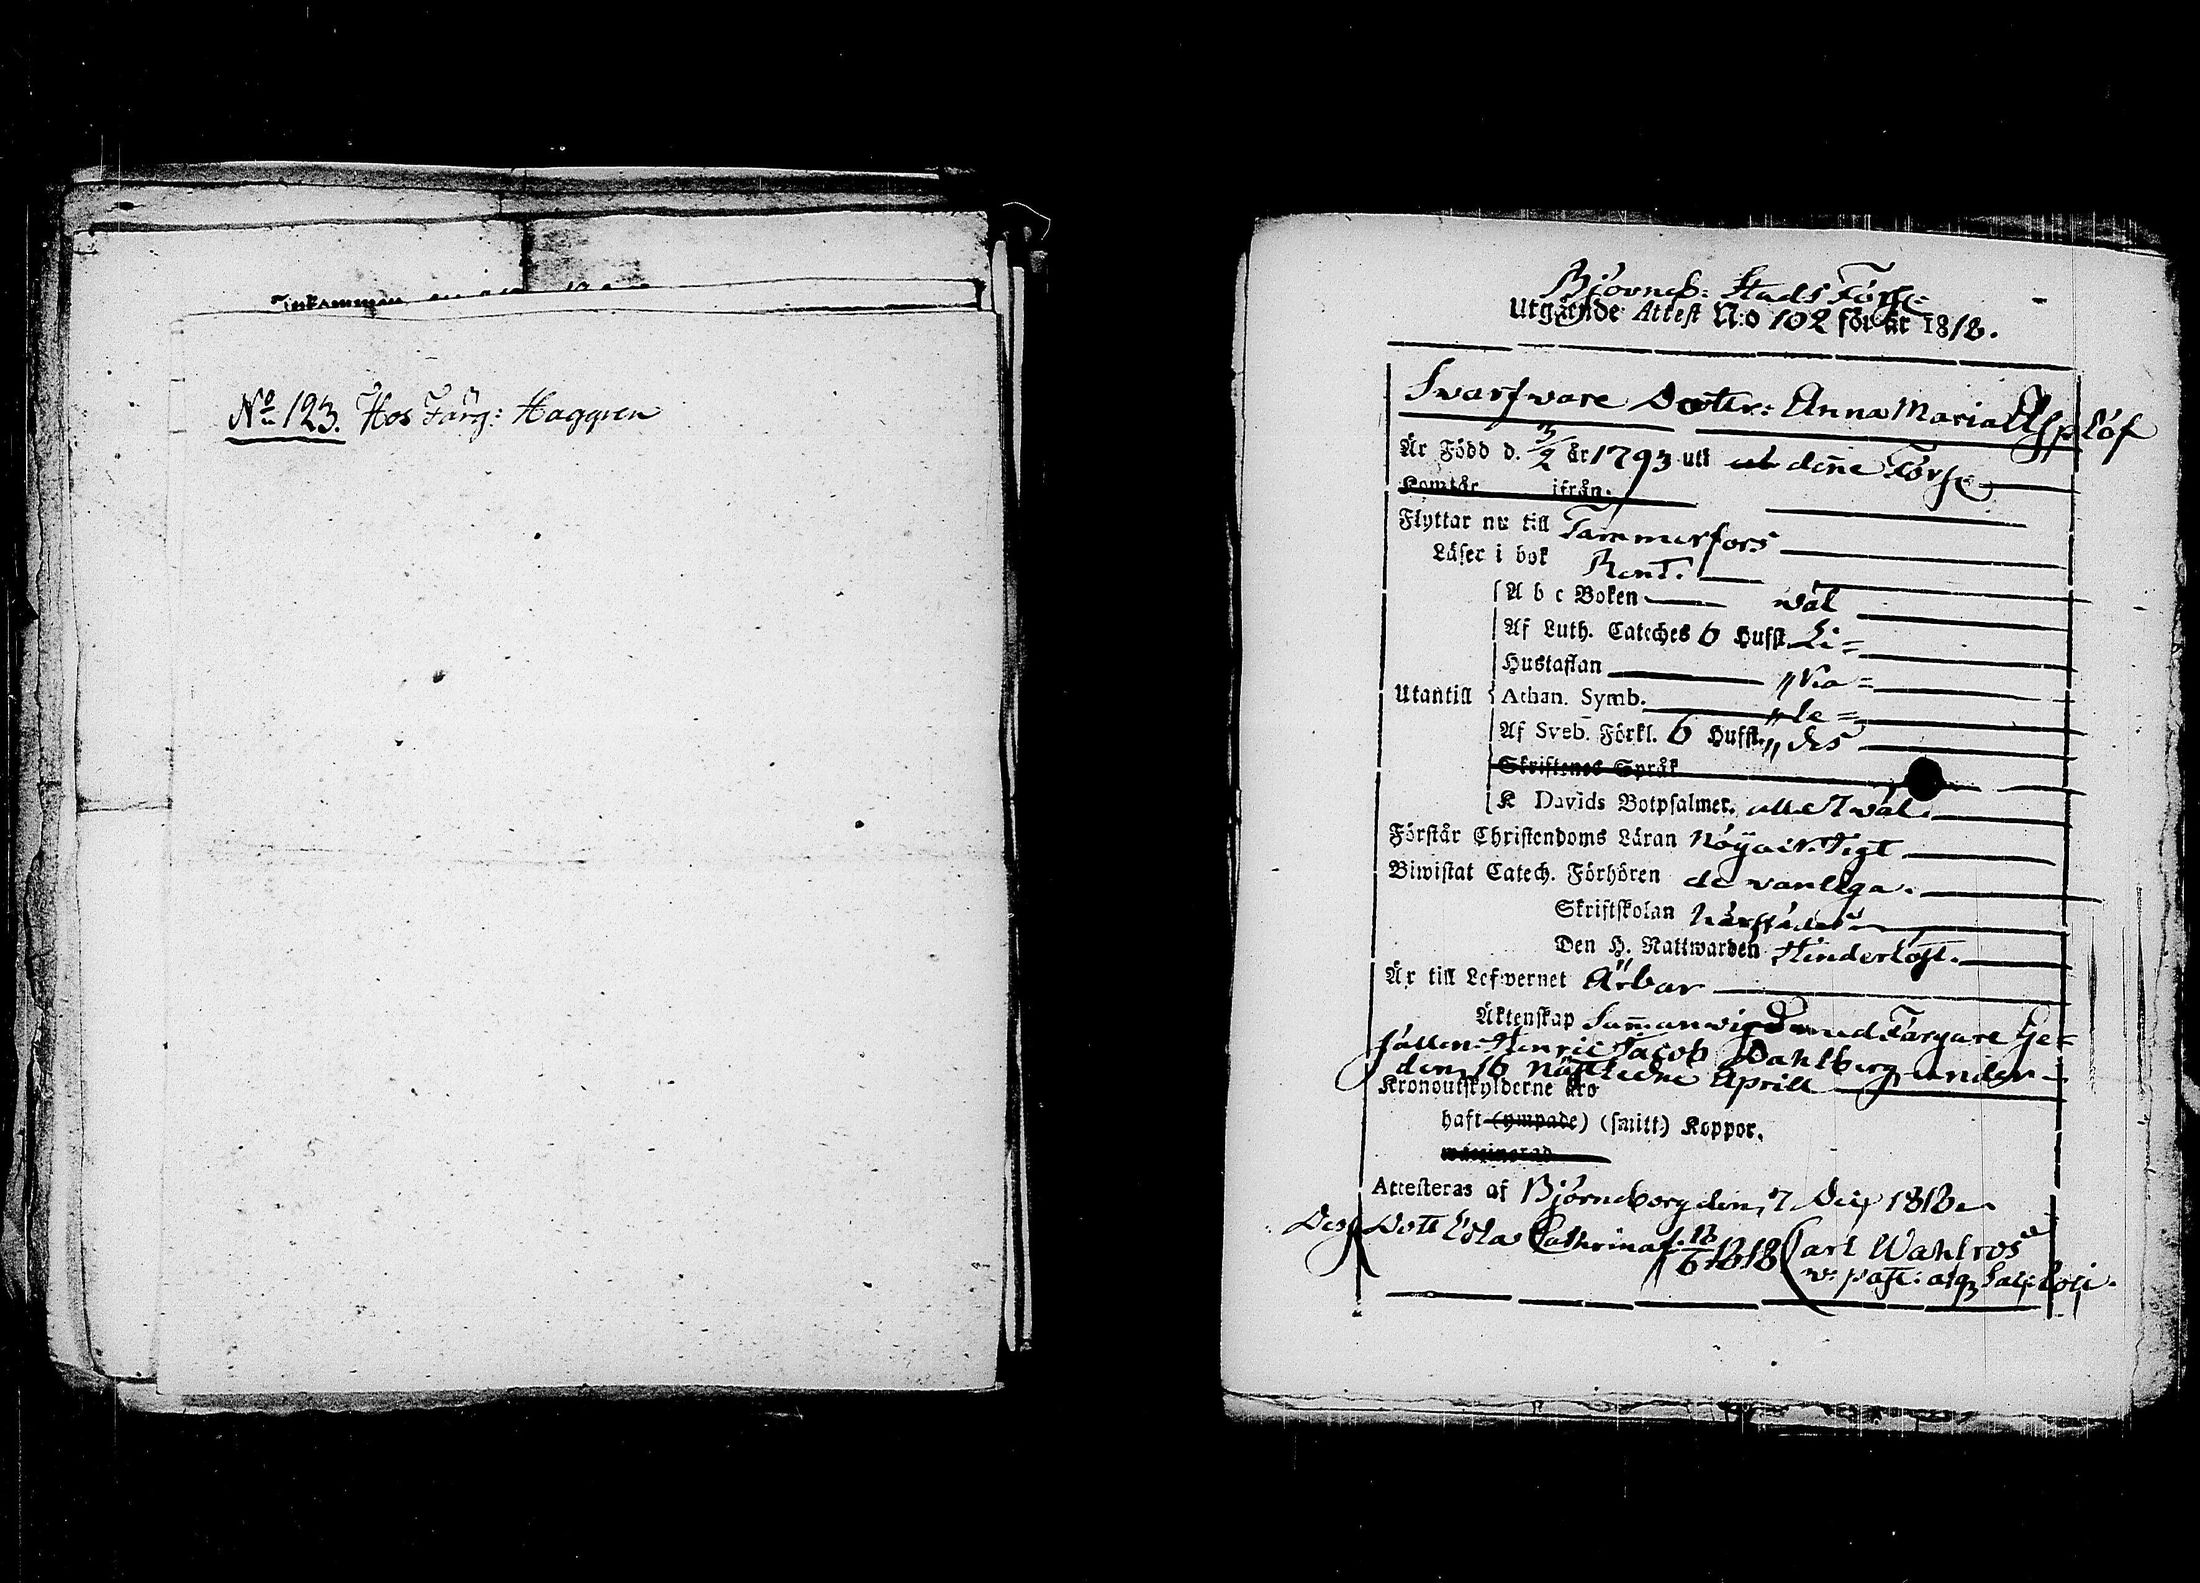 No 123. Hos Färg: Haggren
Björneb: Stads Förs:
Utgående Attest N:o 102 för år 1818.
Swarfware Dotter: Anna Maria Asplöf
Är Född d. 3/2 år 1793 uti denne Förs:
Komt år ifrån.
Flyttar nu till Tammerfors
Läser i bok Rent.
A b c Boken wäl
Af Luth. Cateches 6 Hufst. Li=
Hustaflan
Utantill Athan. Symb. "le=
Af Sveb. Förkl. 6 Hufst. "des
Skriftenes Språk
K Davids Botpsalmer. alle 7 wäl.
Förstår Christendoms Läran Nöjaktigt
Biwistat Catech. Förhören de vanliga.
Skriftskolan härstädes
Den H. Nattwarden Hinderlöst.
Är till Lefvernet Ärbar
Äktenskap Sam̄anvigd med Färgare Ge=
sällen Henric Jacob Dahlberg under
den 16 näst ledne Aprill
Kronoutskylderne
haft (ympade) (smitt:) Koppor.
waccinerad
Attesteras af Björneborg den 7 Dec 1818.
Des Dott Lisa Cathrina f. 18/6 1818 Carl Wahlroos
v: past: